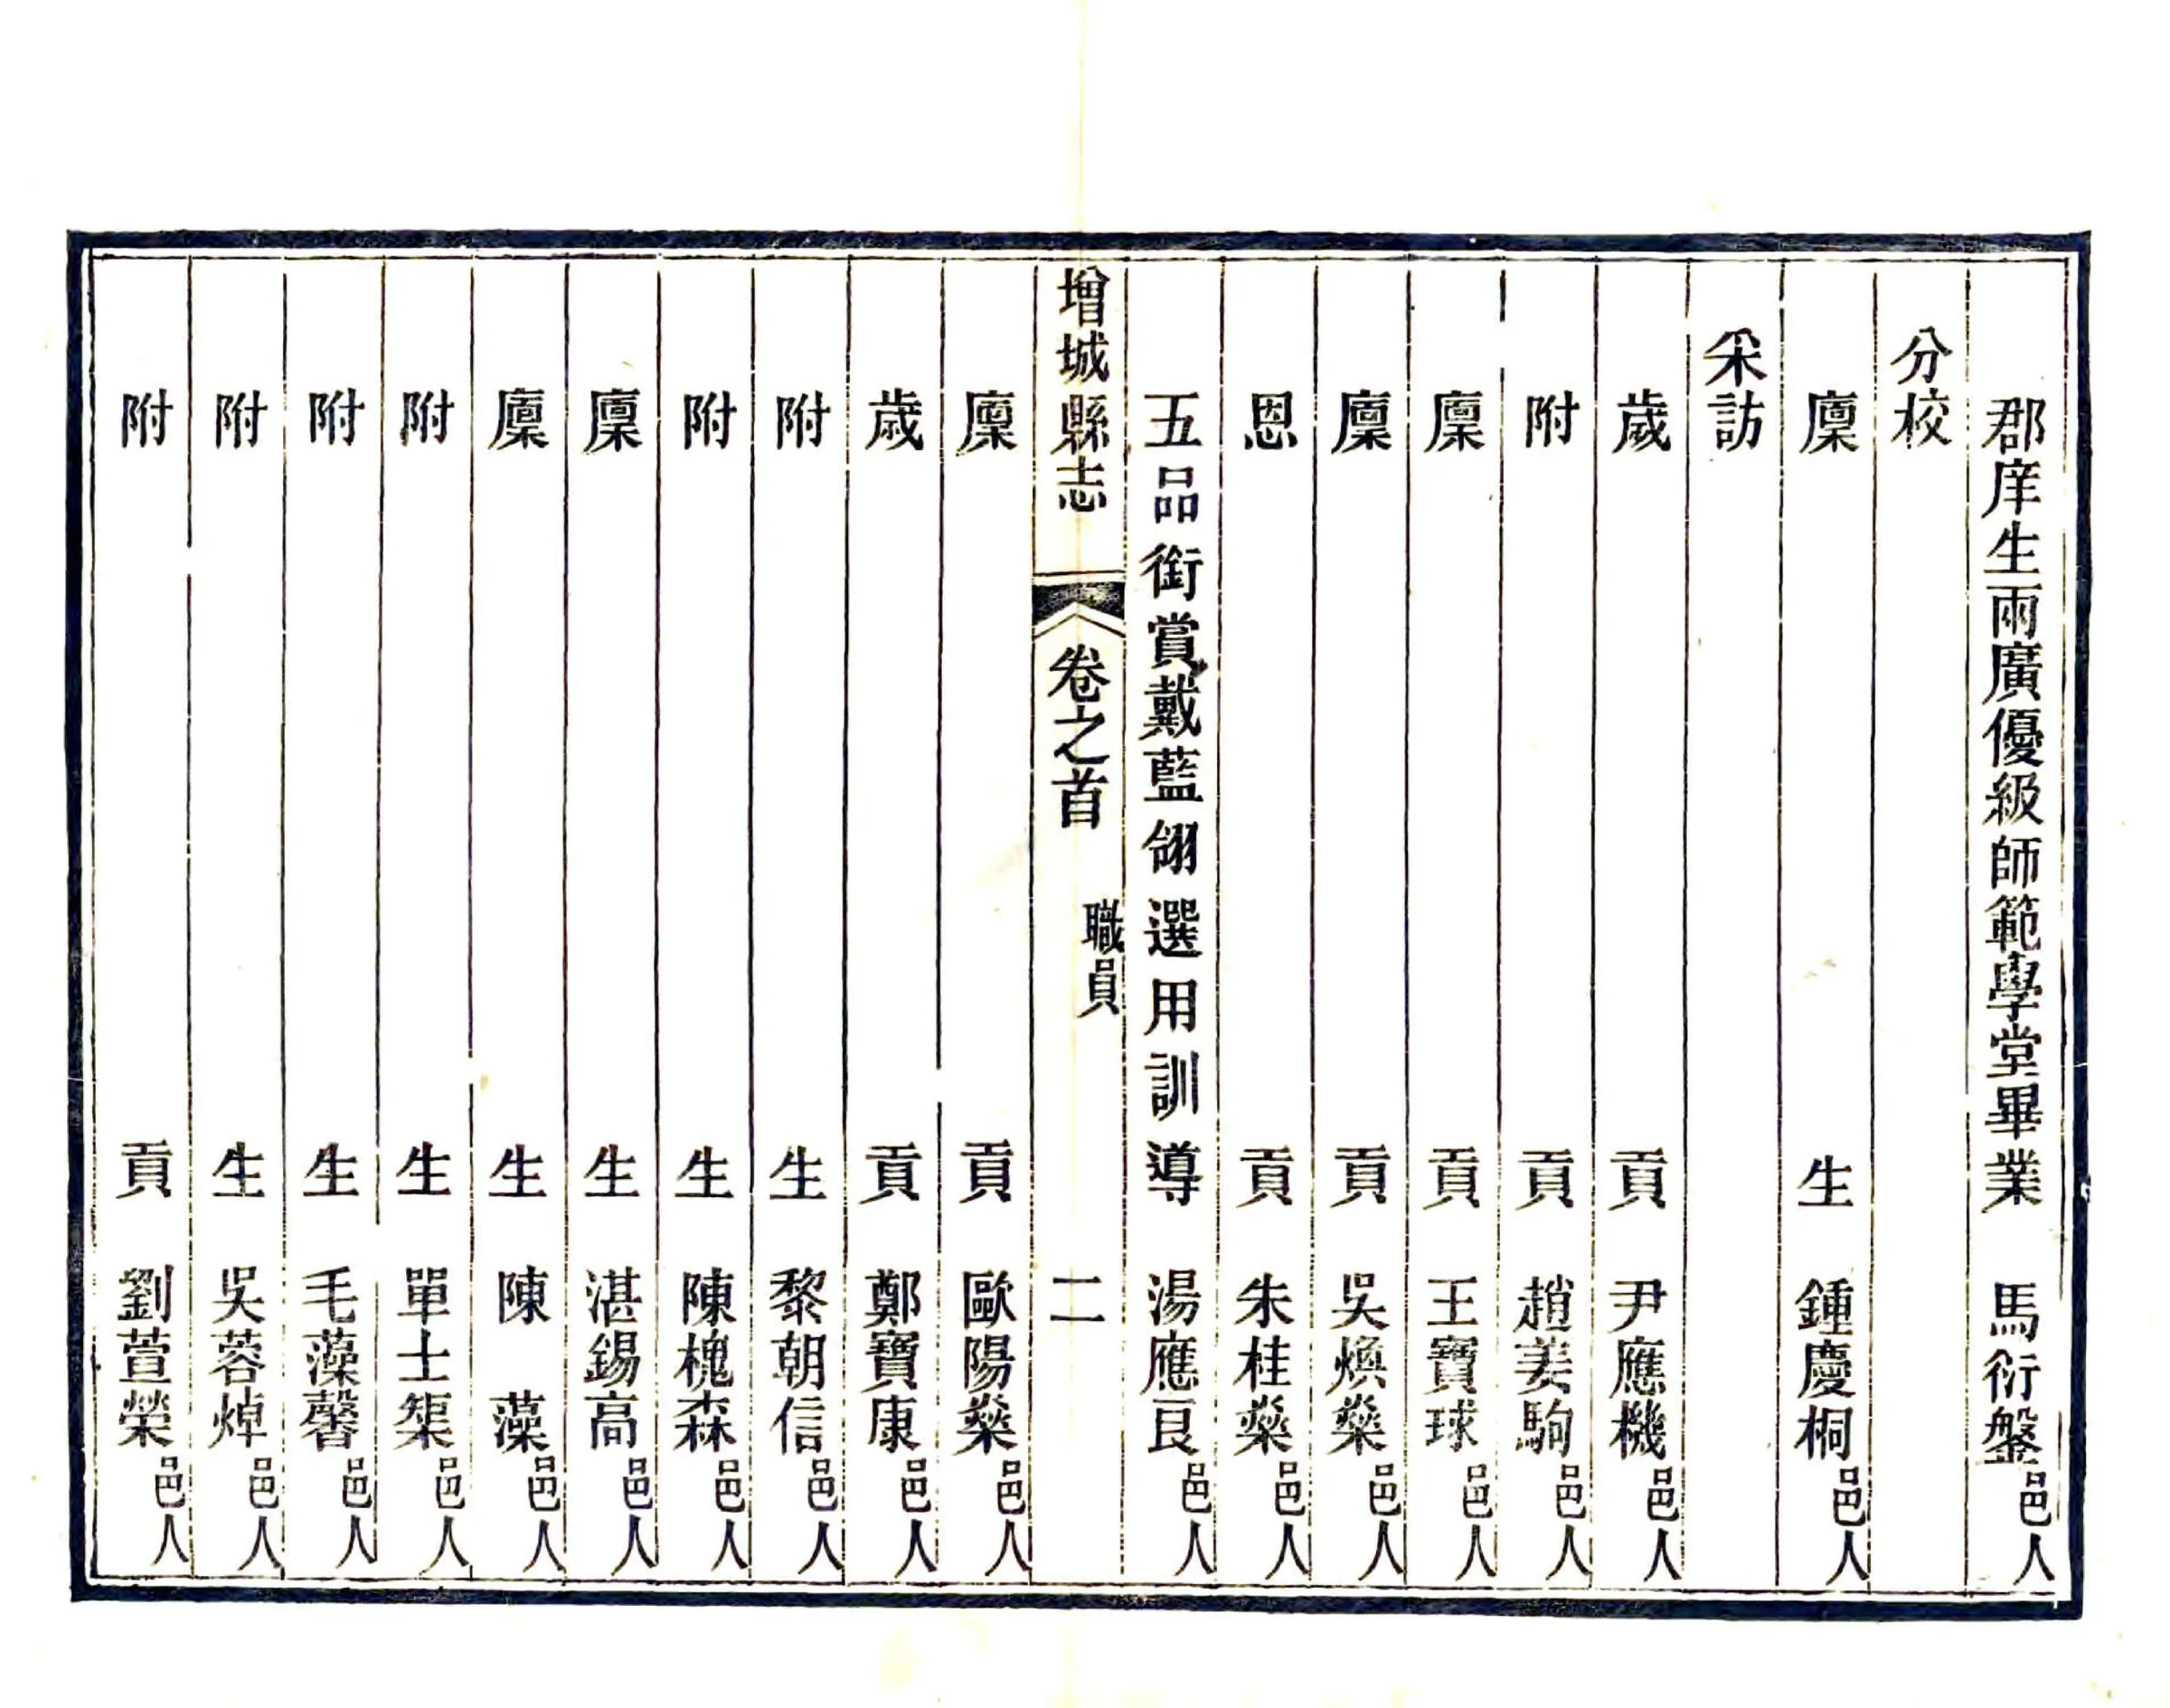 郡庠生兩廣優級師範學堂畢業 馬衍鎜邑人
分校
廩生 鍾慶桐邑人
采訪
歲貢 尹應機邑人
附貢 趙姜駒邑人
廩貢 王寶球邑人
廩貢 吳煥燊邑人
恩貢 朱桂燊邑人
五品銜賞戴藍翎選用訓導 湯應艮邑人
增城縣志 卷之首 職員 二
廩貢 歐陽燊邑人
歲貢 鄭寶康邑人
附生 黎朝信邑人
附生 陳槐森邑人
廩生 湛錫高邑人
廩生 陳 藻邑人
附生 單士榘邑人
附生 毛藻馨邑人
附生 吳蓉焯邑人
附貢 劉萱榮邑人